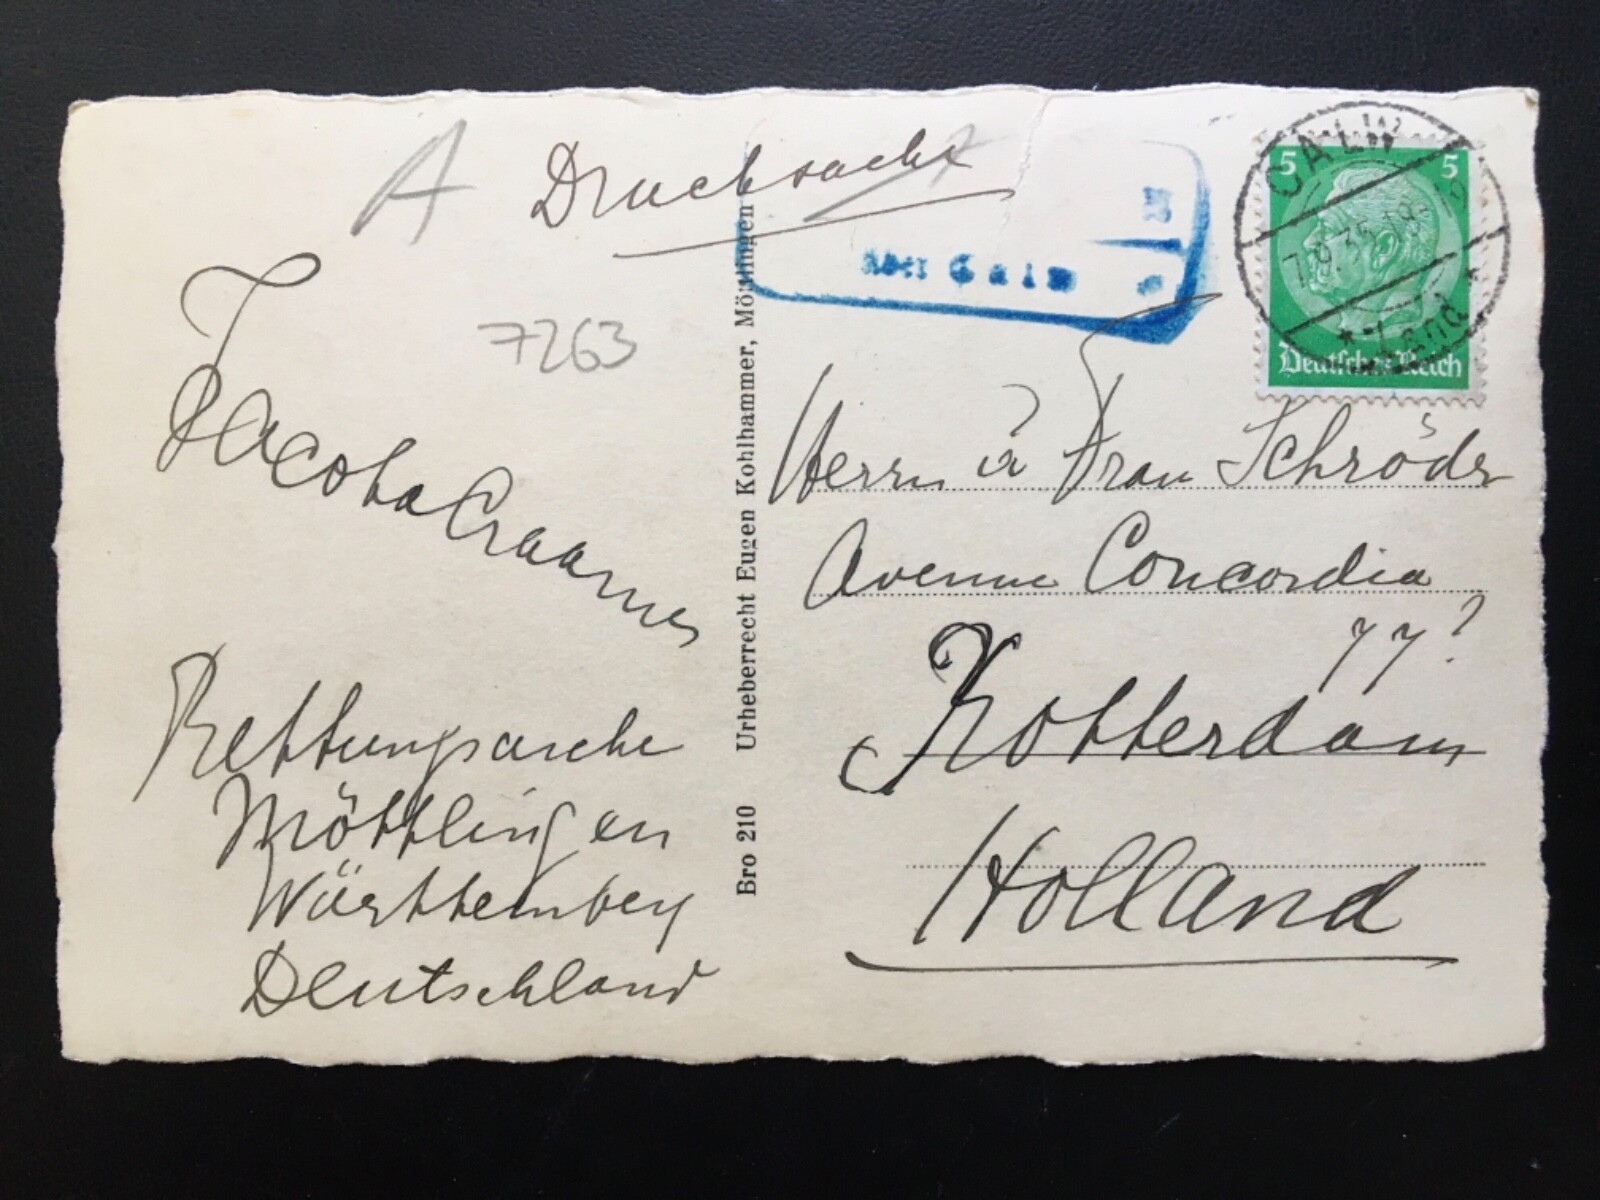 A Drucksache
7263
T
Jacoba Craamer
Rettungsarche
Möttlingen
Württemberg
Deutschland
Bro 210 Urheberrecht Eugen Kohlhammer, Möttlingen
Calw
5 5
CALW
7.9.35.19-
* Land *
Deutsches Reich
Herrn & Frau Schröder
Avenue Concordia
77?
Rotterdam
Holland